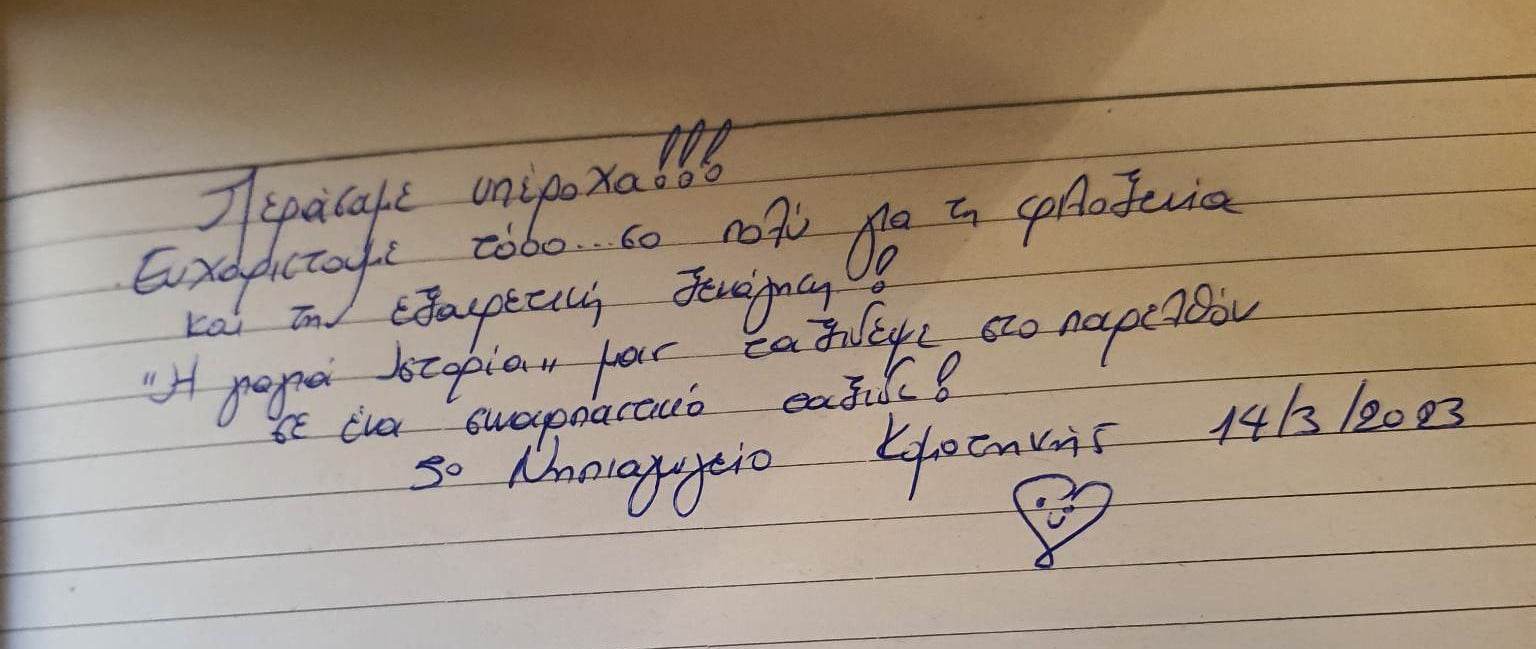 Περάσαμε υπέροχα!!!
Ευχαριστούμε τόσο...σο πολύ για τη φιλοξενία
και την εξαιρετική ξενάγηση!
"Η γιαγιά Ιστορία" μας ταξίδεψε στο παρελθόν
σε ένα συναρπαστικό ταξίδι!
5ο Νηπιαγωγείο 14/3/2023